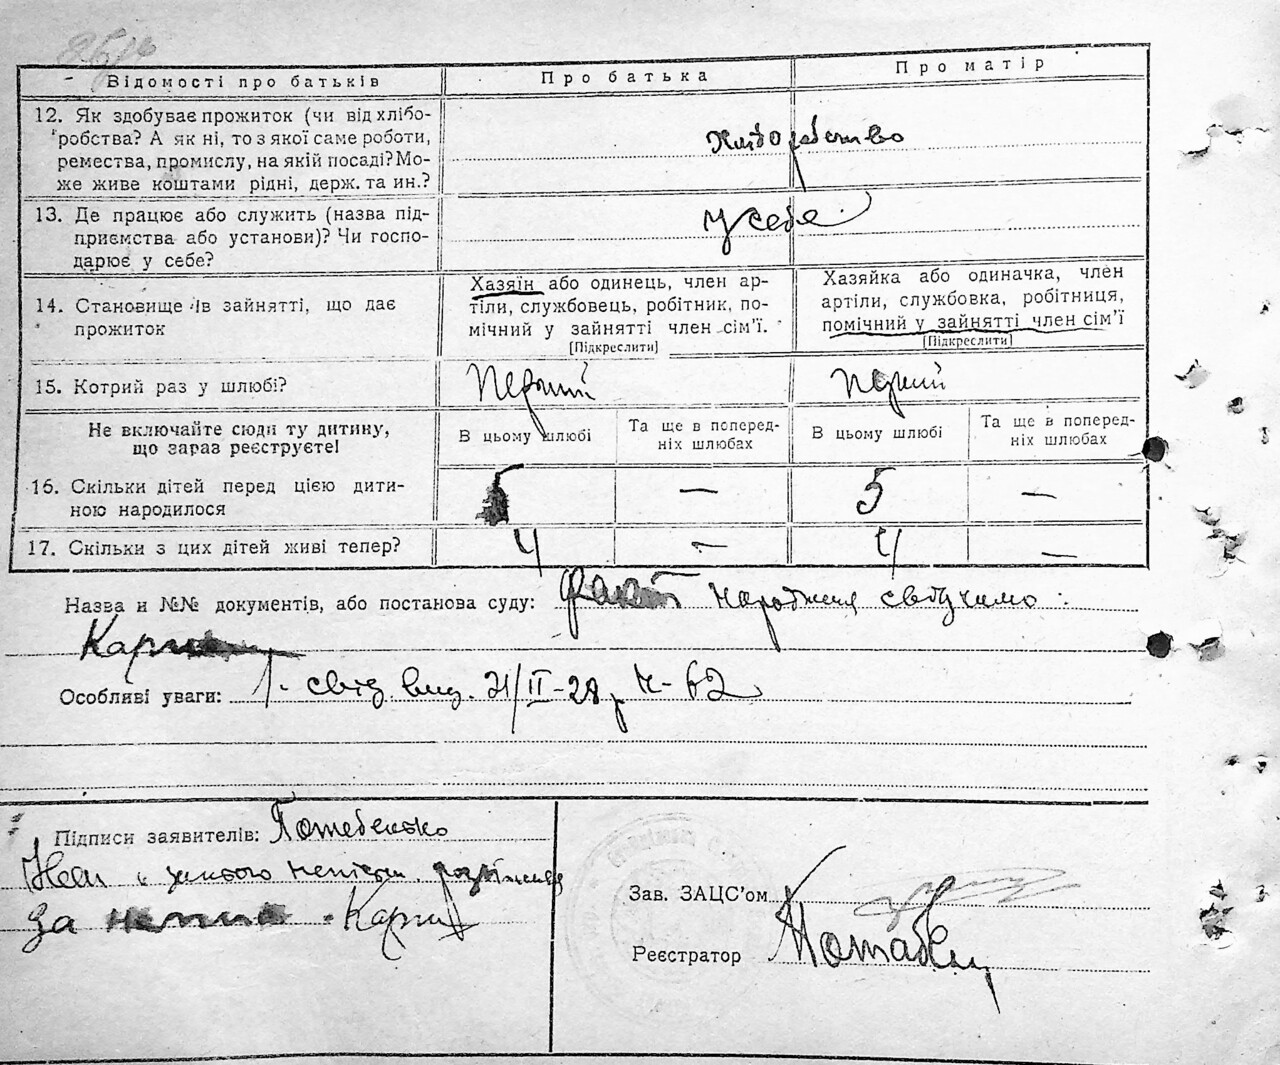 Відомості про батьків
Про батька
Про матір
12. Як здобуває прожиток (чи від хлібо-
робства? А як ні, то з якої саме роботи,
ремества, промислу, на якій посаді? Мо-
же живе коштами рідні, держ. та ин.?
хліборобство
13. Де працює або служить (назва під-
приємства або установи)? Чи госпо-
дарює у себе?
у себе
14. Становище їв зайнятті, що дає
прожиток
Хазяїн або одинець, член ар-
тіли, службовець, робітник, по-
мічний у зайнятті член сім'ї.
[Підкреслити]
Хазяйка або одиначка, член
артіли, службовка, робітниця,
помічний у зайнятті член сім'ї
[Підкреслити]
15. Котрий раз у шлюбі?
Перший
Перший
Не включайте сюди ту дитину,
що зараз реєструєте!
В цьому шлюбі
Та ще в поперед-
ніх шлюбах
В цьому шлюбі
Та ще в поперед-
ніх шлюбах
16. Скільки дітей перед цією дити-
ною народилося
5 — 5 —
17. Скільки з цих дітей живі тепер?
4 — 4 —
Назва и №№ документів, або постанова суду: Факт народження свідчимо:
Особливі уваги: 1. свід. вид. 21/II-28 р Ч-62
Підписи заявителів: Потебенько
за
Зав. ЗАЦС'ом
Реєстратор